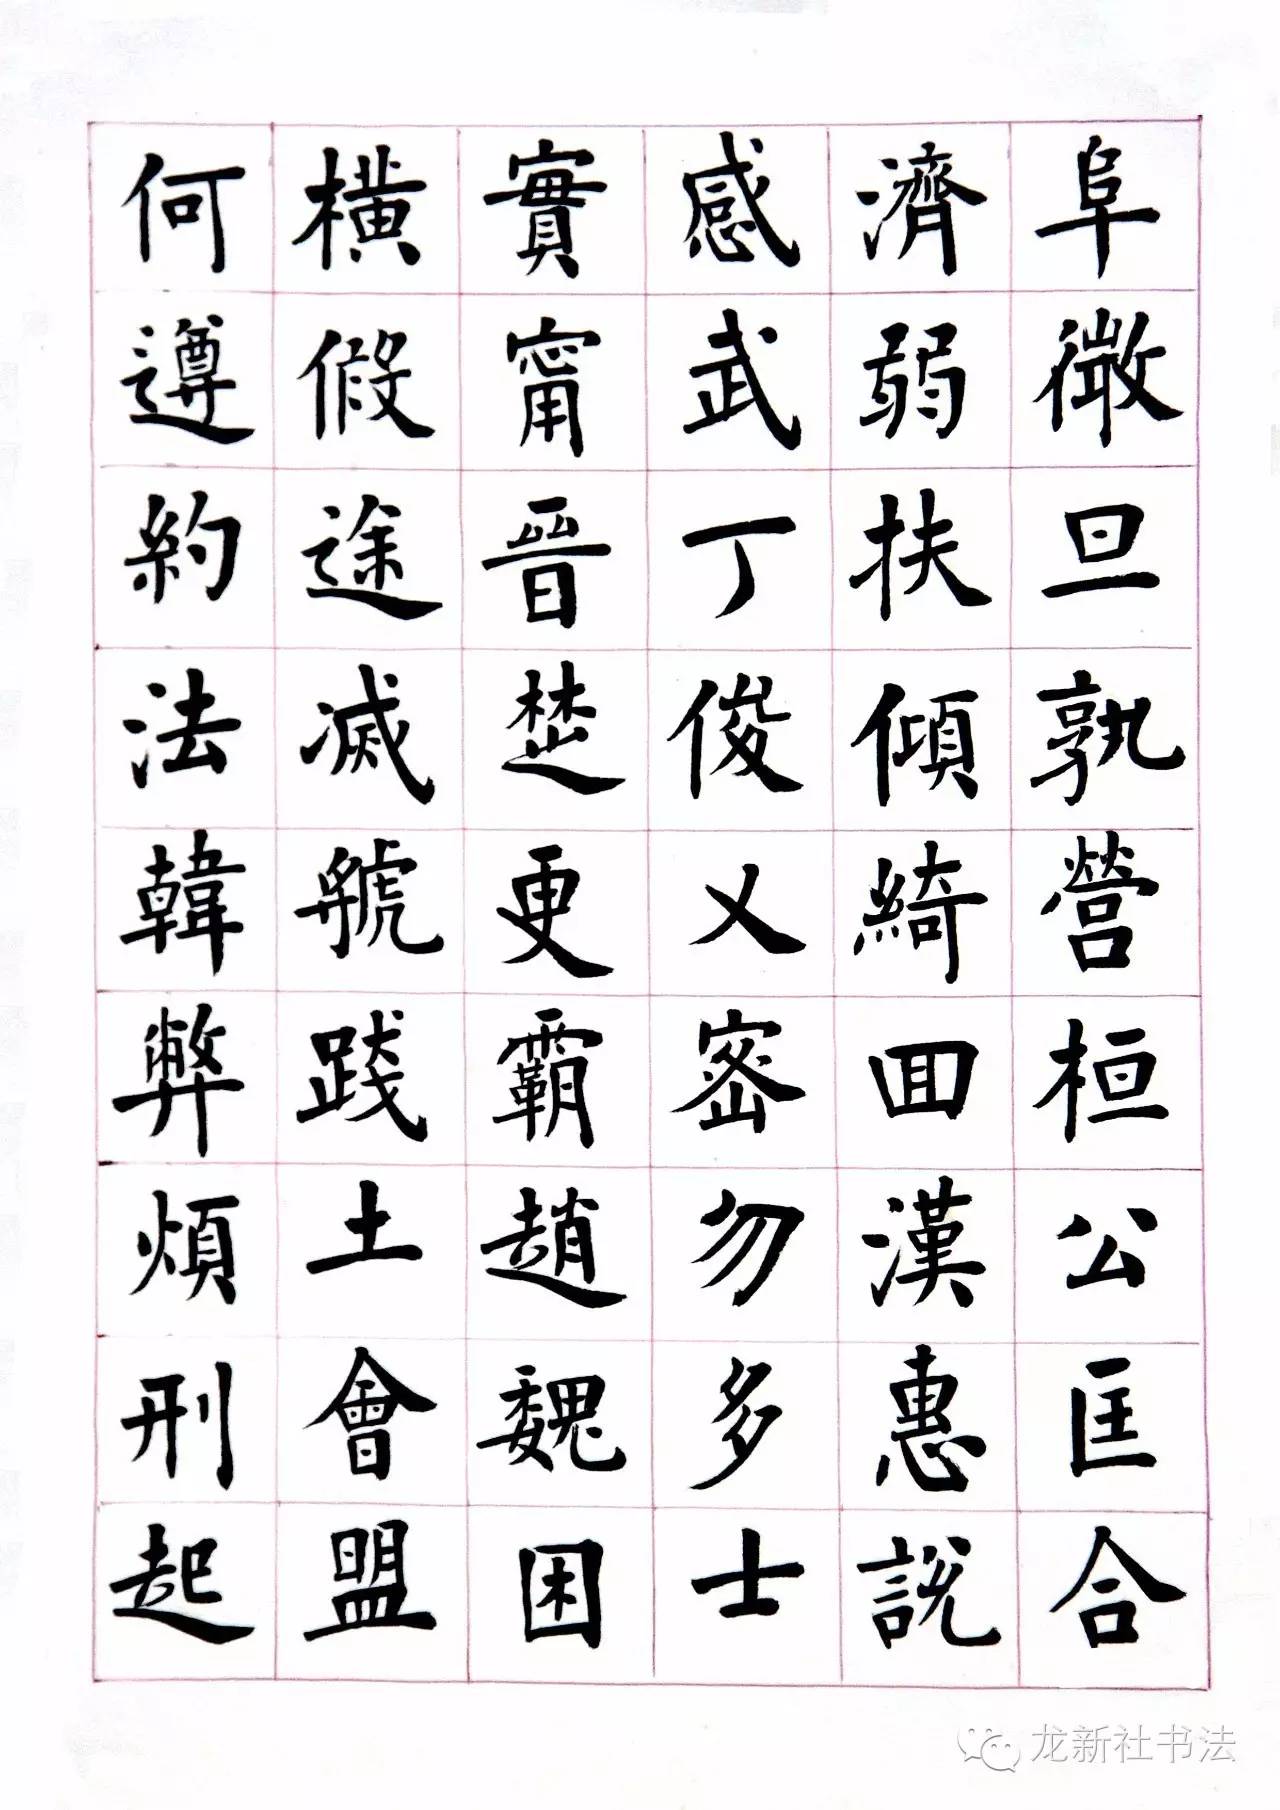 阜微旦孰營桓公匡合
濟弱扶傾綺回漢惠說
感武丁俊乂密勿多士
實甯晉楚更霸趙魏困
橫假途滅虢踐土會盟
何遵約法韓弊煩刑起
龙新社书法